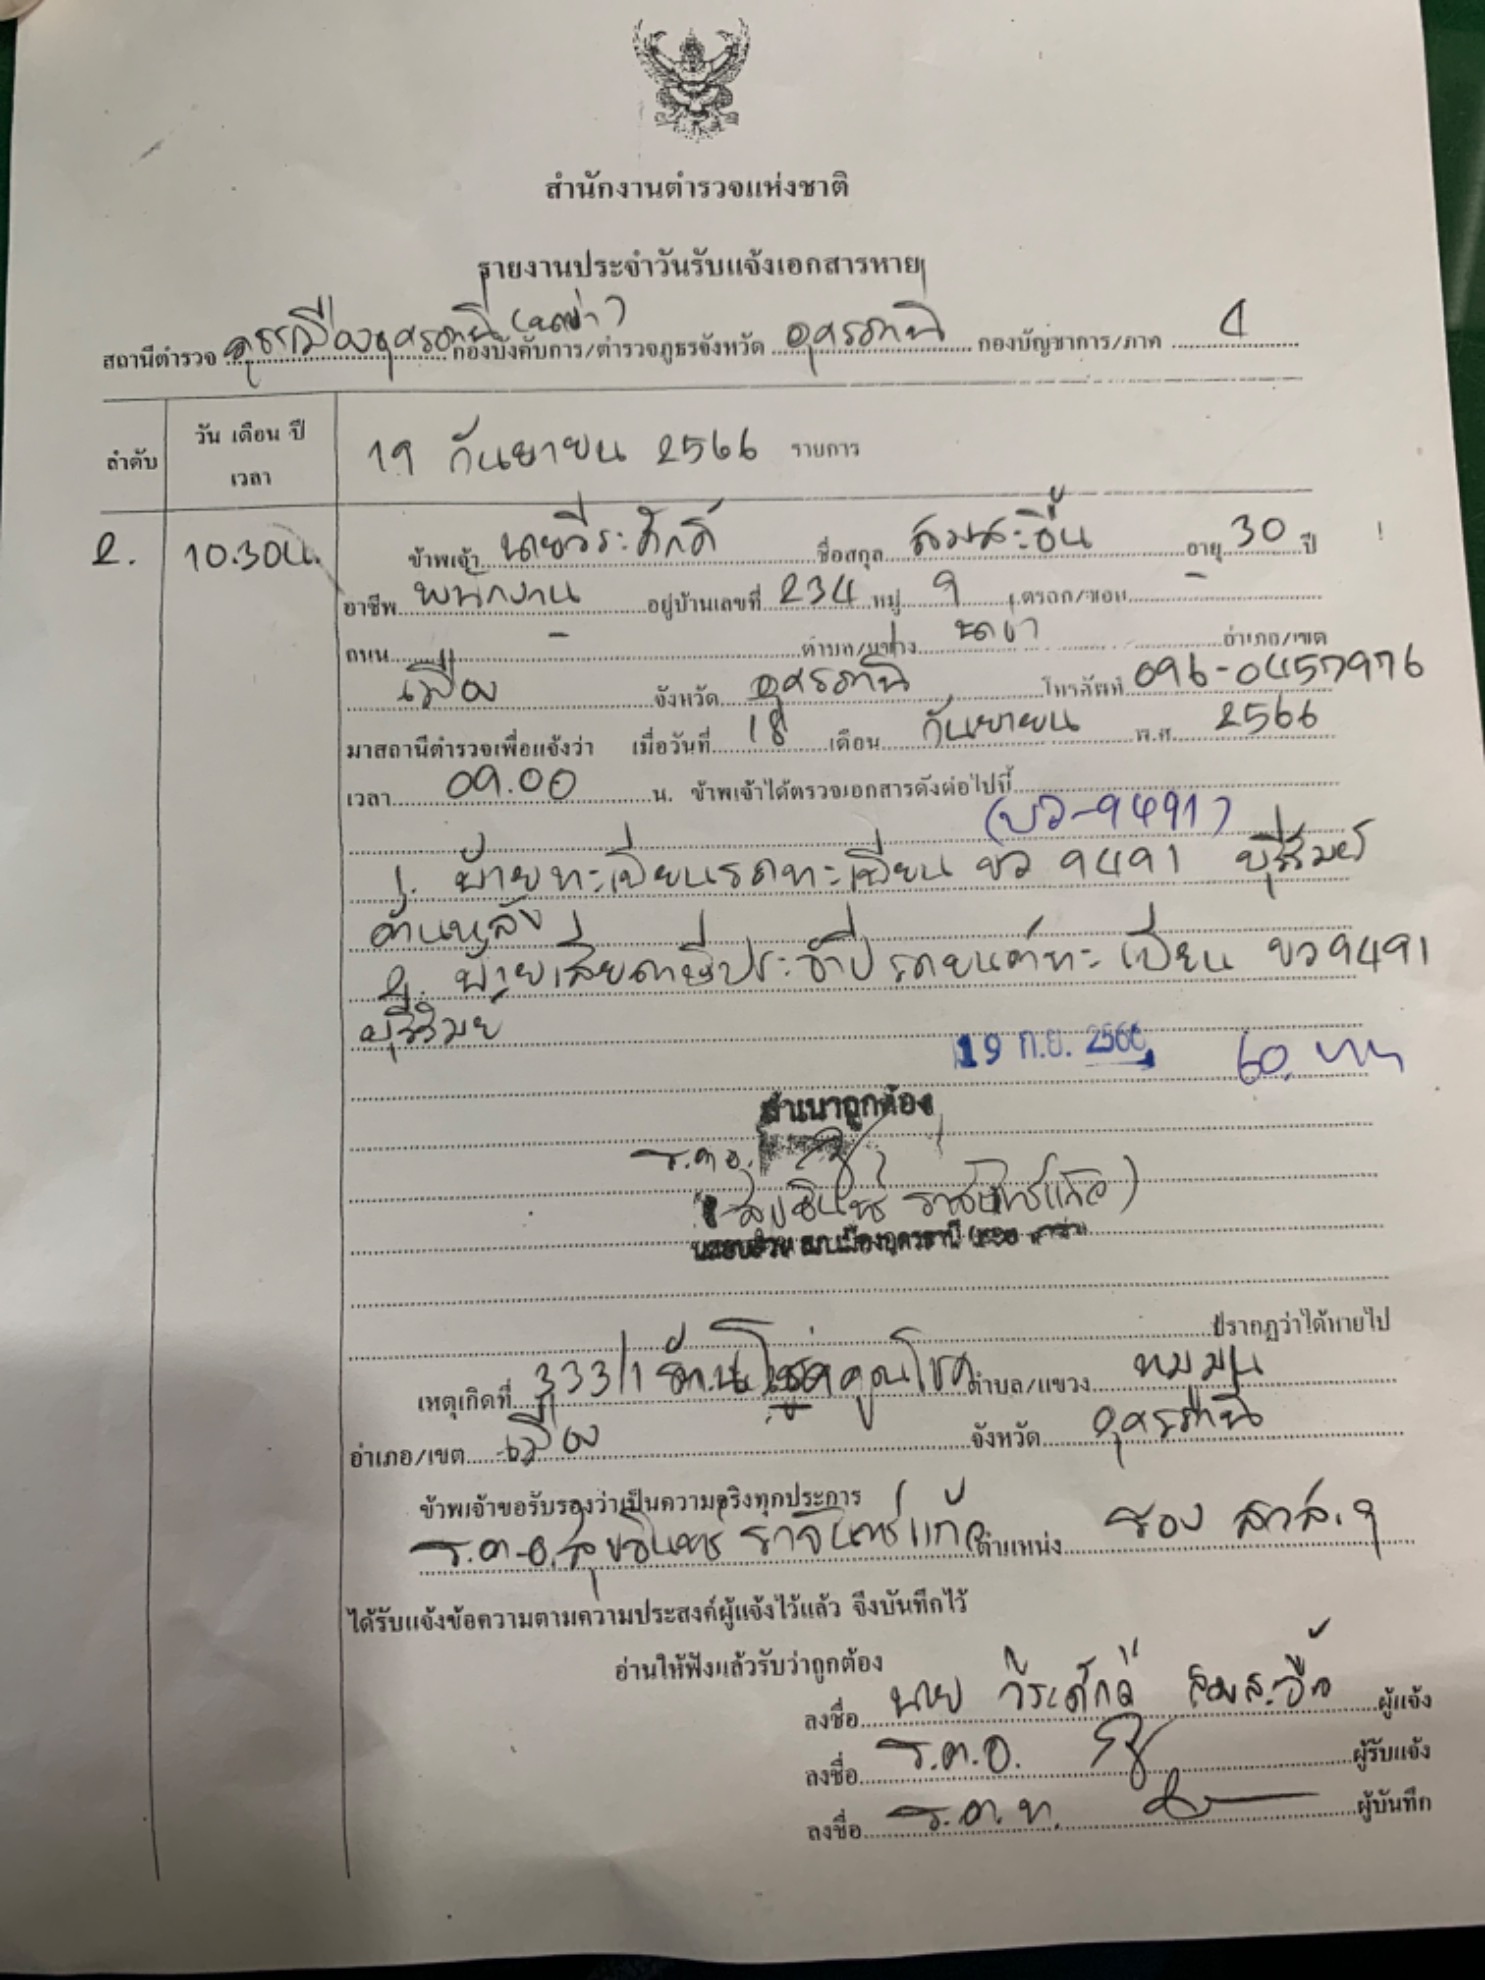 สำนักงานตำรวจแห่งชาติ
รายงานประจำวันรับแจ้งเอกสารหาย
สถานีตำรวจ ภูธรเมืองอุดรธานี (นาข่า) กองบังคับการ/ตำรวจภูธรจังหวัด อุดรธานี กองบัญชาการ/ภาค 4
ลำดับ วัน เดือน ปี เวลา 19 กันยายน 2566 รายการ
2. 10.30น. ข้าพเจ้า นายวีระศักดิ์ ชื่อสกุล สมสะอื้น อายุ 30 ปี
อาชีพ พนักงาน อยู่บ้านเลขที่ 234 หมู่ 9 ตรอก/ซอย -
ถนน - ตำบล/แขวง นาข่า อำเภอ/เขต
เมือง จังหวัด อุดรธานี โทรศัพท์ 096-0457976
มาสถานีตำรวจเพื่อแจ้งว่า เมื่อวันที่ 18 เดือน กันยายน พ.ศ. 2566
เวลา 09.00 น. ข้าพเจ้าได้ตรวจเอกสารดังต่อไปนี้
(บว-9491)
1. ป้ายทะเบียนรถทะเบียน บว 9491 บุรีรัมย์
ด้านหลัง
2. ป้ายเสียภาษีประจำปีรถยนต์ทะเบียน บว 9491
บุรีรัมย์
19 ก.ย. 2566 60 บาท
สำเนาถูกต้อง
ร.ต.อ.
ปรากฏว่าได้หายไป
เหตุเกิดที่ 333/1 คูณโชค ตำบล/แขวง หมูม่น
อำเภอ/เขต เมือง จังหวัด อุดรธานี
ข้าพเจ้าขอรับรองว่าเป็นความจริงทุกประการ
ร.ต.อ. ตำแหน่ง รอง สวส.ฯ
ได้รับแจ้งข้อความตามความประสงค์ผู้แจ้งไว้แล้ว จึงบันทึกไว้
อ่านให้ฟังแล้วรับว่าถูกต้อง
ลงชื่อ นาย วีระศักดิ์ สมสะอื้น ผู้แจ้ง
ลงชื่อ ร.ต.อ. ผู้รับแจ้ง
ลงชื่อ ร.ต.ท. ผู้บันทึก